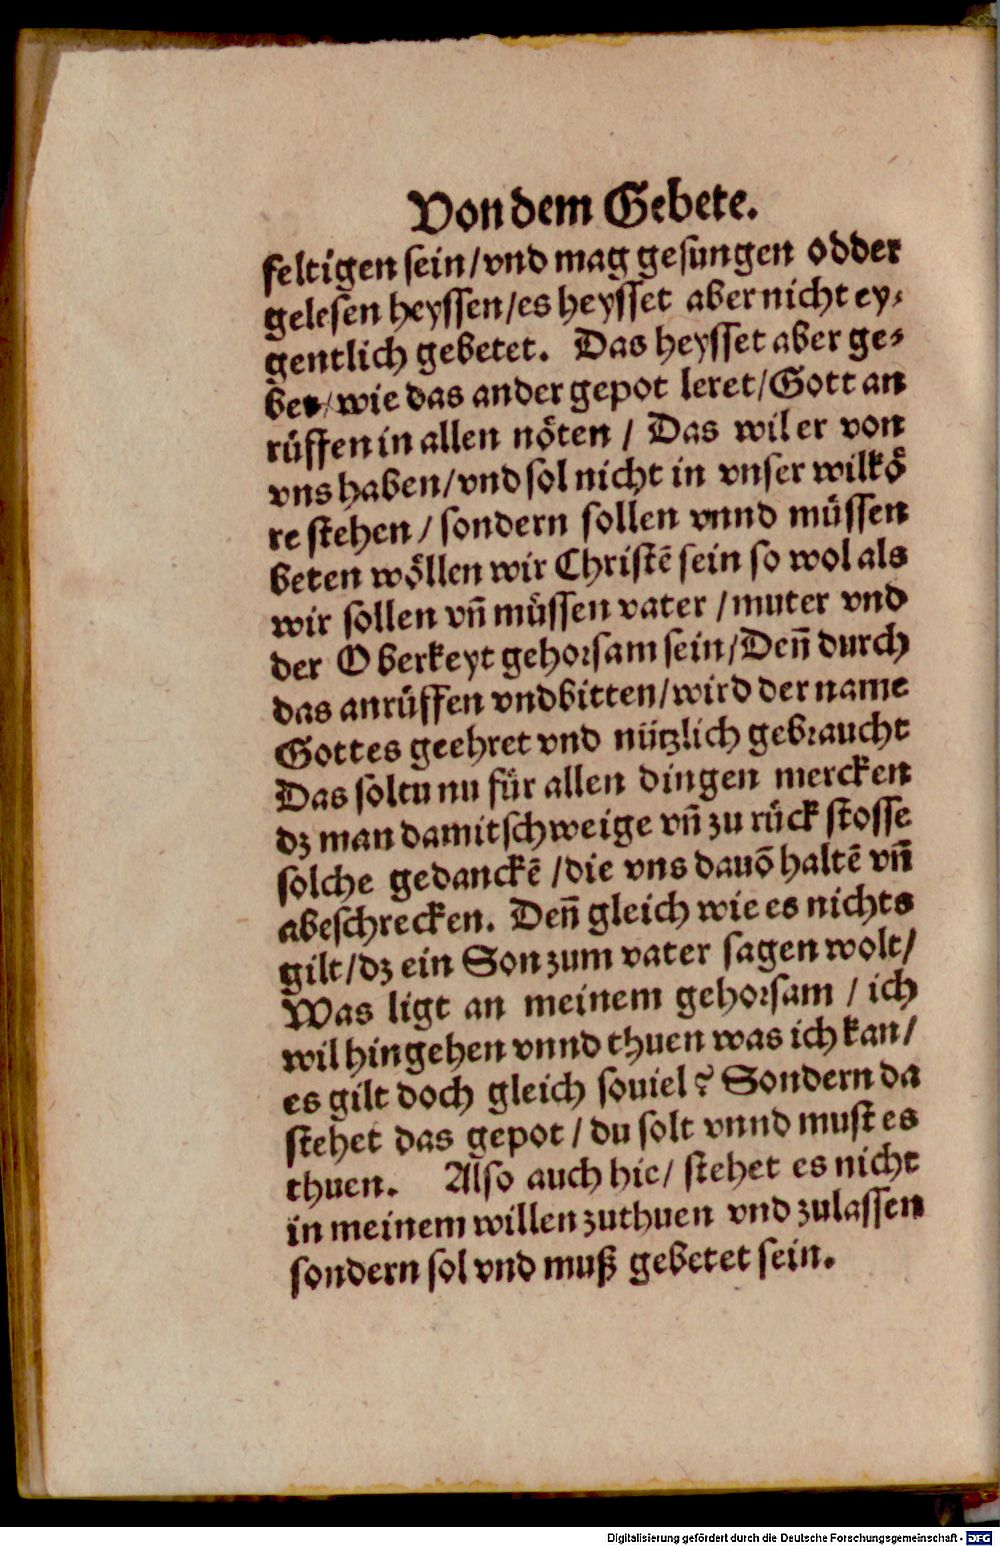 Von dem Gebete.
feltigen sein/vnd mag gesungen odder
gelesen heyssen/es heysset aber nicht ey⸗
gentlich gebetet. Das heysset aber ge⸗
bet/wie das ander gepot leret/Gott an
rüffen in allen nöten / Das wil er von
vns haben/vnd sol nicht in vnser wilkö
re stehen / sondern sollen vnnd müssen
beten wöllen wir Christē sein so wol als
wir sollen vñ müssen vater / muter vnd
der Oberkeyt gehorsam sein/Deñ durch
das anrüffen vnd bitten/wird der name
Gottes geehret vnd nützlich gebraucht
Das soltu nu für allen dingen mercken
dz man damit schweige vñ zu rück stosse
solche gedanckē /die vns dauō haltē vñ
abeschrecken. Deñ gleich wie es nichts
gilt/dz ein Son zum vater sagen wolt/
Was ligt an meinem gehorsam / ich
wil hingehen vnnd thuen was ich kan/
es gilt doch gleich souiel? Sondern da
stehet das gepot / du solt vnnd must es
thuen. Also auch hie/ stehet es nicht
in meinem willen zuthuen vnd zulassen
sondern sol vnd muß gebetet sein.
Digitalisierung gefördert durch die Deutsche Forschungsgemeinschaft - DFG